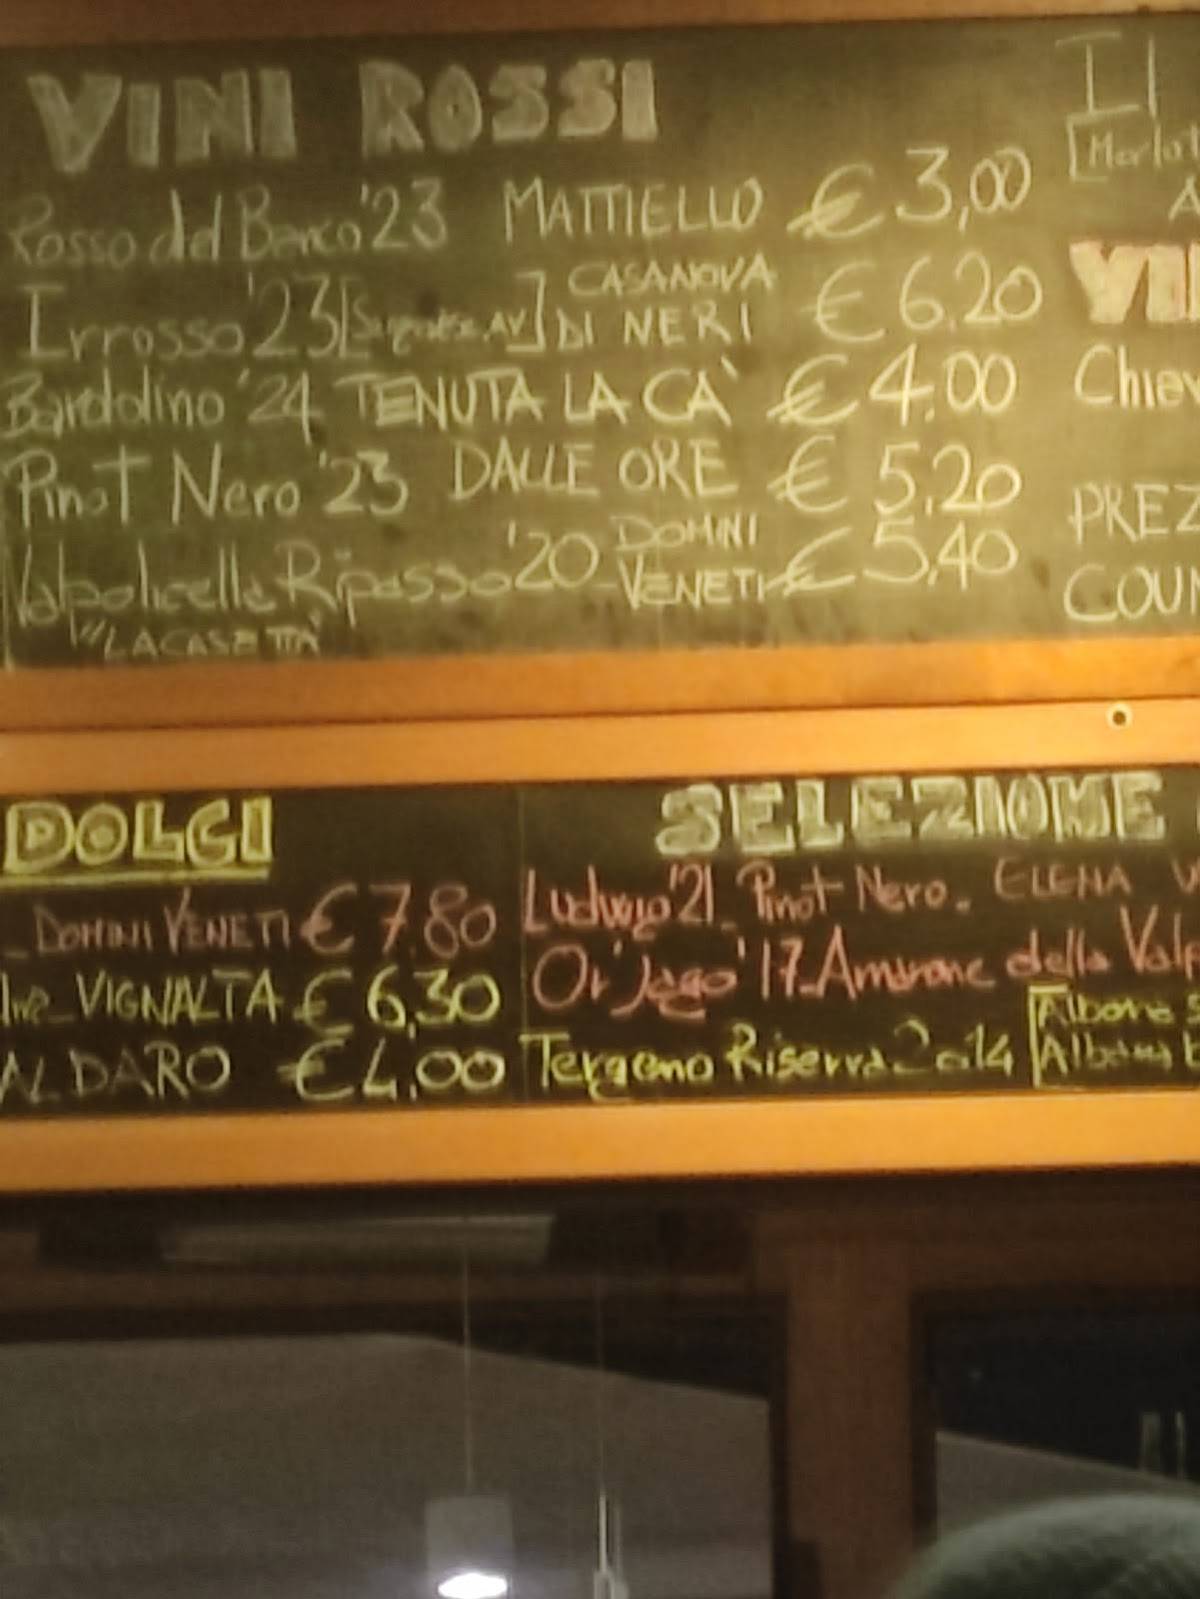 VINI ROSSI
Rosso del Barco '23 MATTIELLO € 3,00
Irrosso '23 CASANOVA DI NERI € 6,20
Bardolino '24 TENUTA LA CA' € 4.00
Pinot Nero '23 DALLE ORE € 5,20
Valpolicella Ripasso '20 DOMINI VENETI € 5,40
"LA CASETTA"
Il
[Merlot
Chiev
PREZ
COUN
DOLCI
_ DOMINI VENETI € 7.80
_ VIGNALTA € 6,30
ALDARO € 4,00
SELEZIONE
Ludwig '21_ Pinot Nero. ELENA W
Or' Jago '17_ Amarone della Valp
Tergeno Riserva 2014 [Albana
[Albana